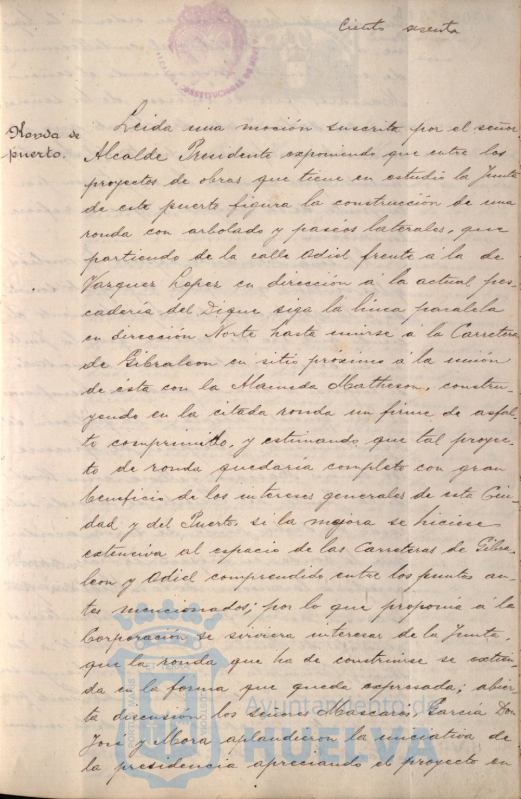 Ciento sesenta
Ronda de
puerto.
Leida una moción suscrita por el señor
Alcalde Presidente exponiendo que entre los
proyectos de obras que tiene en estudio la Junta
de este puerto figura la construcción de una
ronda con arbolado y paseos laterales, que
partiendo de la calle Odiel frente á la de
Vazquez Lopez en dirección á la actual pes-
caderia del Dique siga la linea paralela
en dirección Norte hasta unirse á la Carretera
de Gibraleon en sitio próximo á la unión
de ésta con la Alameda Matheson, constru-
yendo en la citada ronda un firme de asfal-
to comprimido, y estimando que tal proyec-
to de ronda quedaria completo con gran
beneficio de los intereses generales de esta Ciu-
dad y del Puerto, si la mejora se hiciese
extensiva al espacio de las Carreteras de Gibra-
leon y Odiel comprendido entre los puntos an-
tes mencionados; por lo que proponia á la
Corporación se sirviera interesar de la Junta,
que la ronda que ha de construirse se extien-
da en la forma que queda expresada; abier-
ta discusion los señores Mascaros, Garcia Don
José y Mora aplaudieron la iniciativa de
la presidencia apreciando el proyecto en
Ayuntamiento de
HUELVA